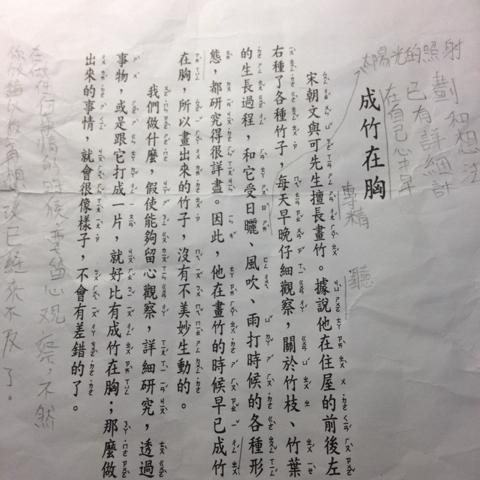 成竹在胸
宋朝文與可先生擅長畫竹。據說他在住屋的前後左
右種了各種竹子，每天早晚仔細觀察，關於竹枝、竹葉
的生長過程，和它受日曬、風吹、雨打時候的各種形
態，都研究得很詳盡。因此，他在畫竹的時候早已成竹
在胸，所以畫出來的竹子，沒有不美妙生動的。
我們做什麼，假使能夠留心觀察，詳細研究，透過
事物，或是跟它打成一片，就好比有成竹在胸；那麼做
出來的事情，就會很像樣子，不會有差錯的了。
太陽光的照射
已有詳細計
劃和想法
在自己心裡
專精
聽
不然
已經來不及了。